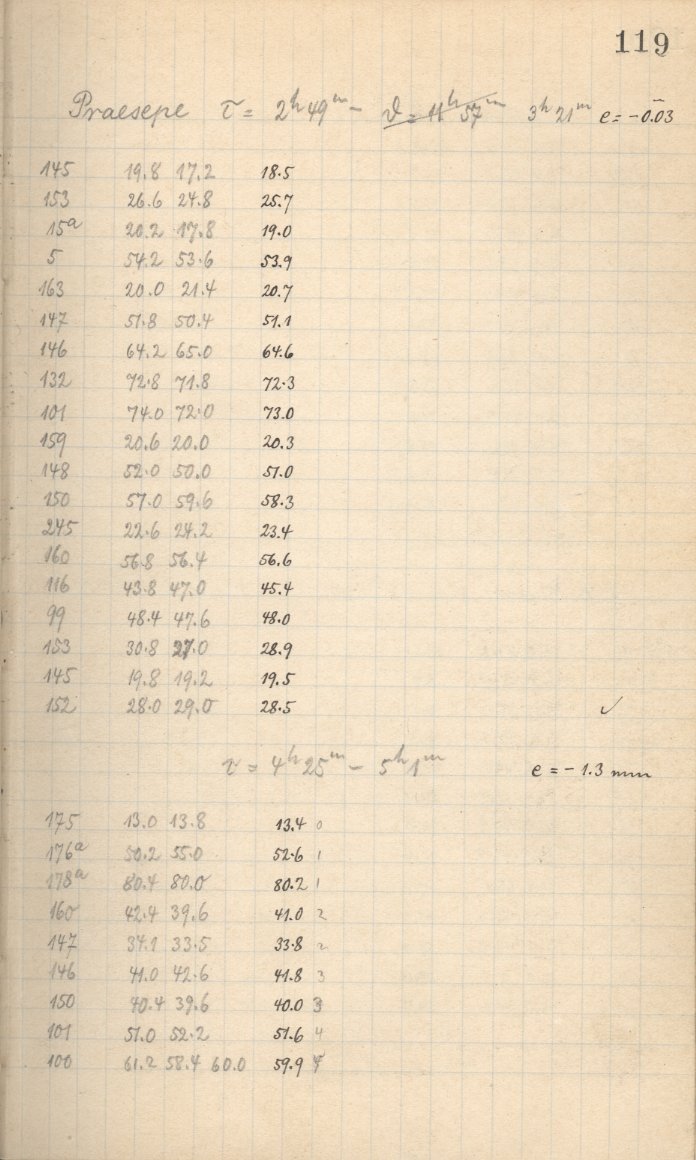 119
Praesepe τ = 2h 49m – ϑ = 11h 57m 3h 21m e = -0.03
145 19.8 17.2 18.5
153 26.6 24.8 25.7
15a 20.2 17.8 19.0
5 54.2 53.6 53.9
163 20.0 21.4 20.7
147 51.8 50.4 51.1
146 64.2 65.0 64.6
132 72.8 71.8 72.3
101 74.0 72.0 73.0
159 20.6 20.0 20.3
148 52.0 50.0 51.0
150 57.0 59.6 58.3
245 22.6 24.2 23.4
160 56.8 56.4 56.6
116 43.8 47.0 45.4
99 48.4 47.6 48.0
153 30.8 27.0 28.9
145 19.8 19.2 19.5
152 28.0 29.0 28.5 ✓
τ = 4h 25m – 5h 1m e = -1.3 mm
175 13.0 13.8 13.4 0
176a 50.2 55.0 52.6 1
178a 80.4 80.0 80.2 1
160 42.4 39.6 41.0 2
147 34.1 33.5 33.8 2
146 41.0 42.6 41.8 3
150 40.4 39.6 40.0 3
101 51.0 52.2 51.6 4
100 61.2 58.4 60.0 59.9